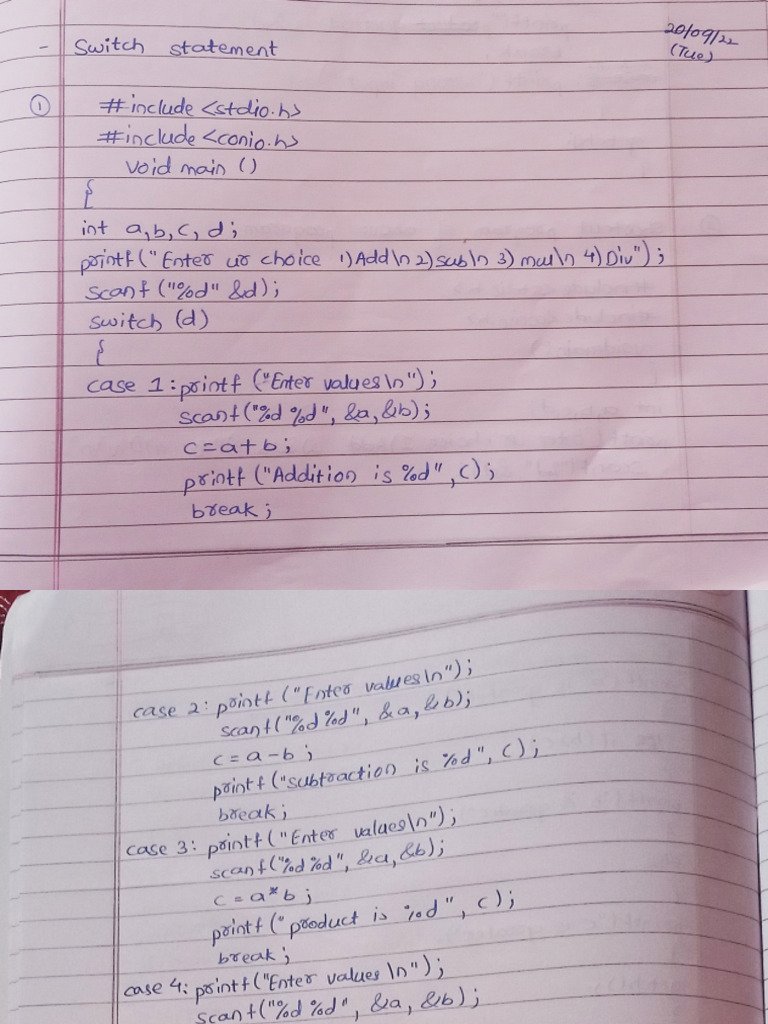 - Switch statement
20/09/22
(Tue)
① #include <stdio.h>
#include <conio.h>
void main ()
{
int a,b,c,d;
printf("Enter ur choice 1)Add\n 2)sub\n 3) mul\n 4)Div");
scanf ("%d" &d);
switch (d)
{
case 1: printf ("Enter values\n");
scanf("%d %d", &a, &b);
c=a+b;
printf ("Addition is %d", c);
break;
case 2: printf ("Enter values\n");
scanf("%d %d", &a, &b);
c = a-b;
printf ("subtraction is %d", c);
break;
case 3: printf ("Enter values\n");
scanf("%d %d", &a, &b);
c = a*b;
printf (" product is %d", c);
break;
case 4: printf ("Enter values \n");
scanf ("%d %d", &a, &b);